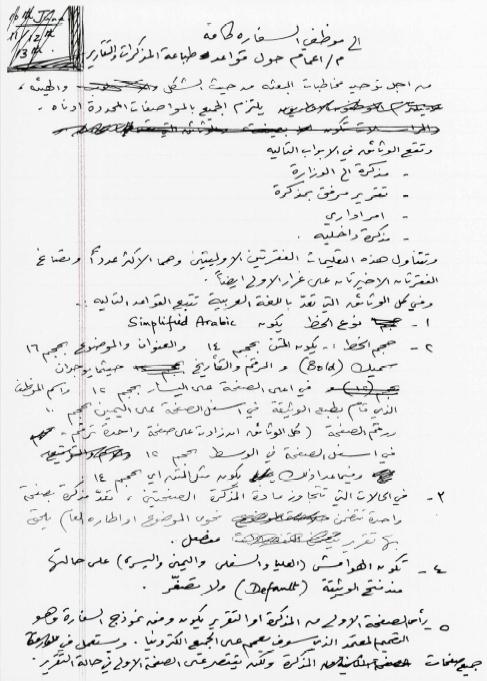 الى موظفي السفارة كافة
م/ اعمام حول قواعد طباعة المذكرات والتقارير
من اجل توحيد مخاطبات البعثة من حيث الشكل والهيئة،
يلتزم الجميع بالمواصفات المحددة ادناه.
وتقع الوثائق في الابواب التالية
- مذكرة الى الوزارة
- تقرير مرفق بمذكرة
- امر اداري
- مذكرة داخلية.
وتتناول هذه التعليمات الفقرتين الاوليتين وهما الاكثر عدداً وتصاغ
الفقرتان الاخيرتان على غرار الاولى ايضاً.
وفي كل الوثائق التي تعدّ باللغة العربية تتبع القواعد التالية :-
١- نوع الخط يكون Simplified Arabic
٢- حجم الخط :- يكون المتن بحجم ١٤ والعنوان والموضوع بحجم ١٦
سميك (Bold) و الرقم والتأريخ حيثما يوجدان
في اعلى الصفحة على اليسار بحجم ١٢ واسم الموظف
الذي قام بطبع الوثيقة في اسفل الصفحة على اليمين بحجم ١٠
ورقم الصفحة (كل الوثائق ان زادت على صفحة واحدة ترقم)
في اسفل الصفحة في الوسط بحجم ١٢
وفيما عدا ذلك يكون مثل المتن اي بحجم ١٤
٣- في الحالات التي تتجاوز مادة المذكرة الصفحتين، تعدّ مذكرة بصفحة
واحدة تتضمن فحوى الموضوع او اطاره العام يلحق
بها تقرير مفصل.
٤- تكون الهوامش (العليا والسفلى واليمين واليسرة) على حالتها
عند فتح الوثيقة (Default) ولا تصغّر.
٥ رأس الصفحة الاولى من المذكرة او التقرير يكون وفق نموذج السفارة وهو
التصميم المعتمد الذي سوف يعمم على الجميع الكترونيا. ويستعمل في
جميع صفحات المذكرة ولكن يقتصر على الصفحة الاولى في حالة التقرير.